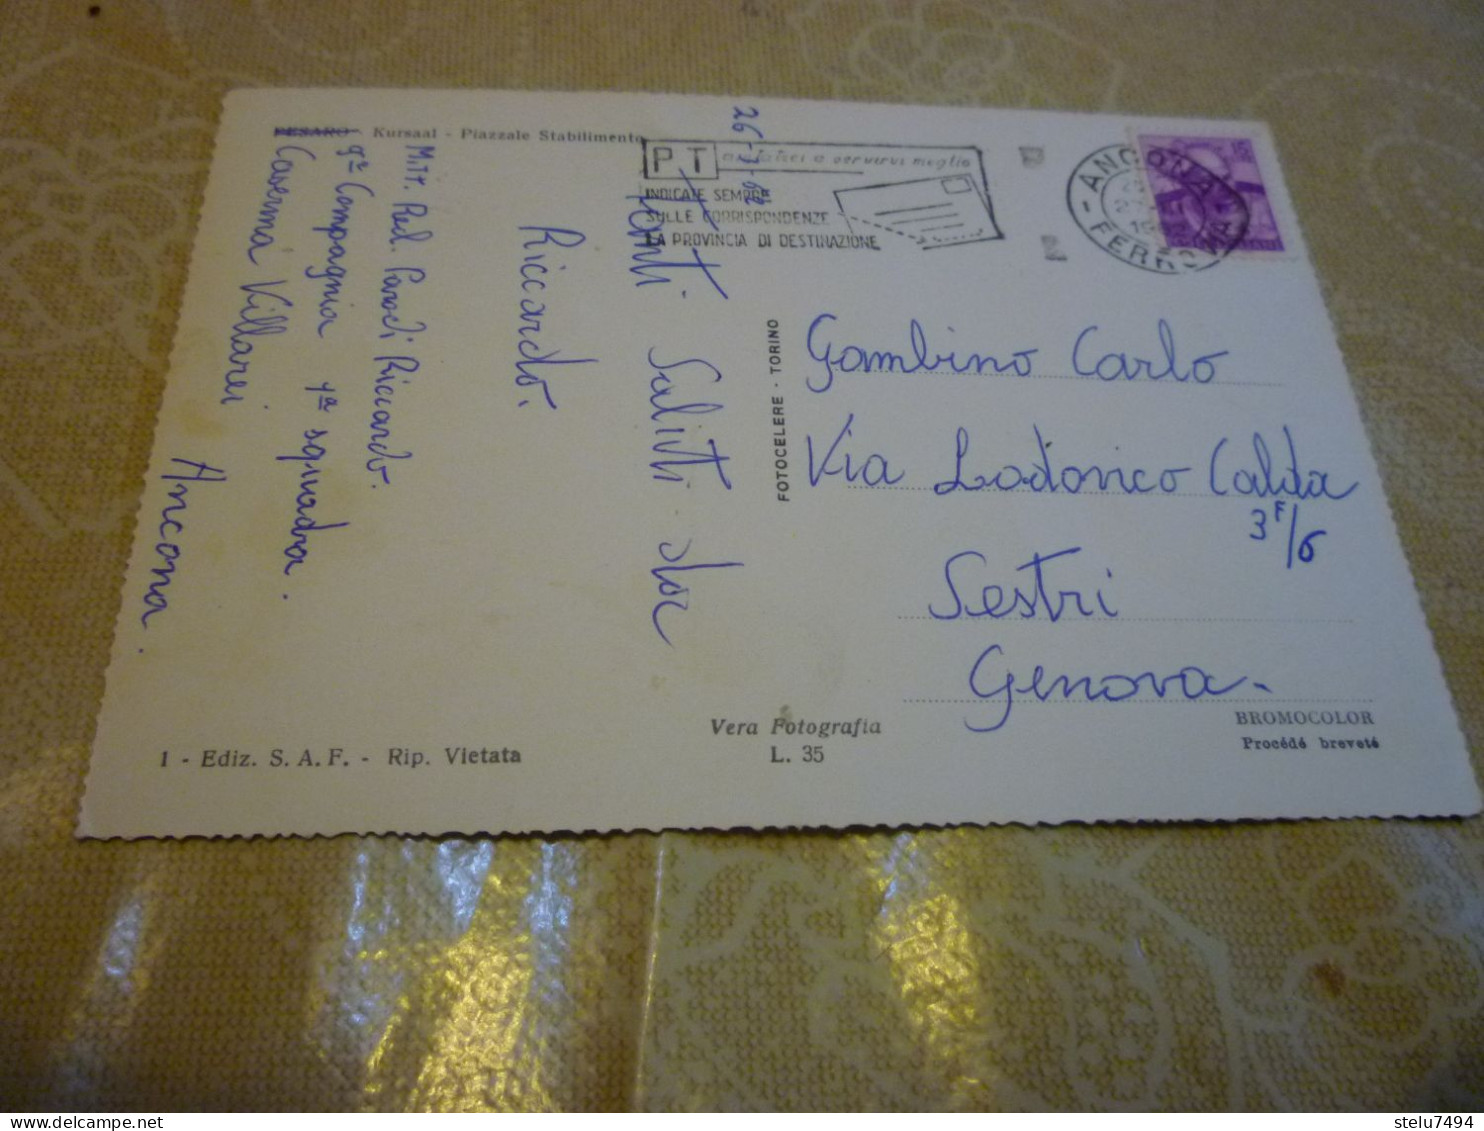 PESARO - Kursaal - Piazzale Stabilimento
26-7-62
Tanti Saluti da
Riccardo.
Milt. Rad. Parodi Riccardo.
9ª Compagnia 1ª squadra.
Caserma Villarei
Ancona.
PT aiutateci a servirvi meglio
INDICATE SEMPRE
SULLE CORRISPONDENZE
LA PROVINCIA DI DESTINAZIONE
ANCONA
FERROVIA
FOTOCELERE - TORINO
Gambino Carlo
Via Lodovico Calda
3F/6
Sestri
Genova-
Vera Fotografia
L. 35
BROMOCOLOR
Procédé breveté
1 - Ediz. S. A. F. - Rip. Vietata
stelu7494